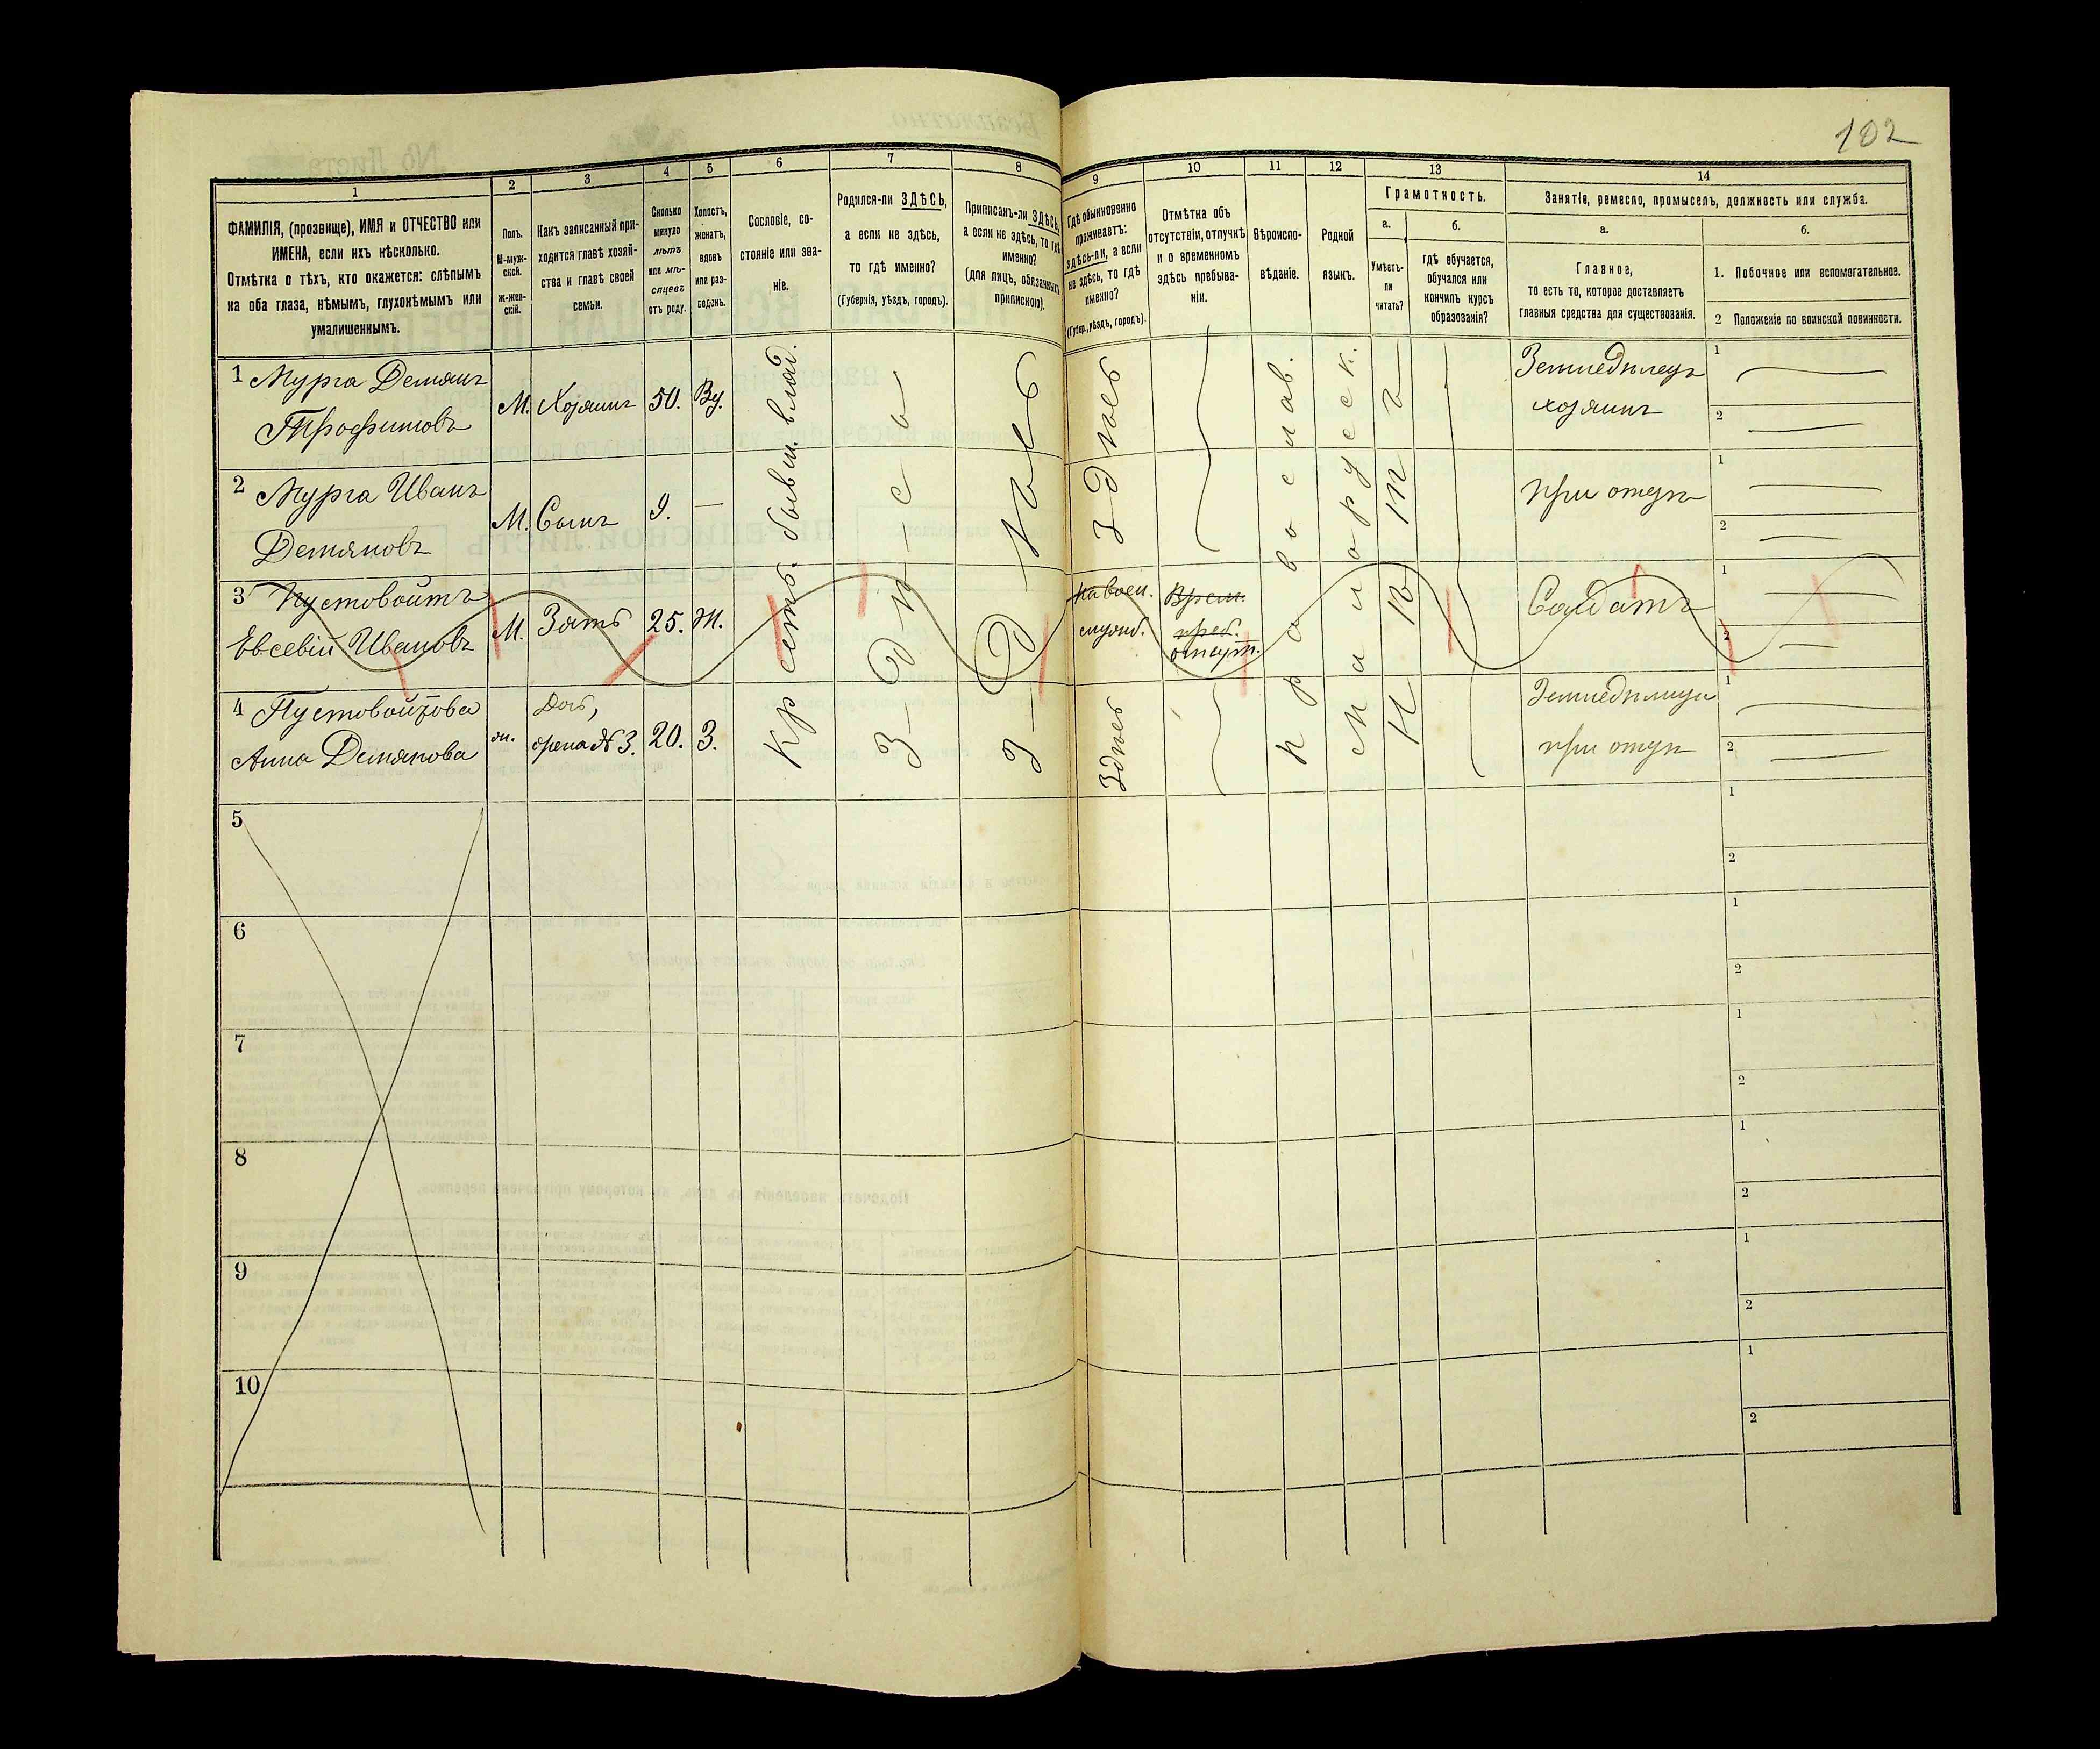 102
1
2
3
4
5
6
7
8
9
10
11
12
13
14
ФАМИЛІЯ, (прозвище), ИМЯ и ОТЧЕСТВО или
ИМЕНА, если ихъ нѣсколько.
Отмѣтка о тѣхъ, кто окажется: слѣпымъ
на оба глаза, нѣмымъ, глухонѣмымъ или
умалишеннымъ.
Полъ.
М-муж-
ской.
Ж-жен-
скій.
Какъ записанный при-
ходится главѣ хозяй-
ства и главѣ своей
семьи.
Сколько
минуло
лѣтъ
или мѣ-
сяцевъ
отъ роду.
Холостъ,
женатъ,
вдовъ
или раз-
веденъ.
Сословіе, со-
стояніе или зва-
ніе.
Родился-ли ЗДѢСЬ,
а если не здѣсь,
то гдѣ именно?
(Губернія, уѣздъ, городъ).
Приписанъ-ли ЗДѢСЬ,
а если не здѣсь, то гдѣ
именно?
(для лицъ, обязанныхъ
припискою).
Гдѣ обыкновенно
проживаетъ:
здѣсь-ли, а если
не здѣсь, то гдѣ
именно?
(Губер., уѣздъ, городъ).
Отмѣтка объ
отсутствіи, отлучкѣ
и о временномъ
здѣсь пребыва-
ніи.
Вѣроиспо-
вѣданіе.
Родной
языкъ.
Грамотность.
а.
Умѣетъ-
ли
читать?
б.
гдѣ обучается,
обучался или
кончилъ курсъ
образованія?
Занятія, ремесло, промыселъ, должность или служба.
а.
Главное,
то есть то, которое доставляетъ
главныя средства для существованія.
б.
1. Побочное или вспомогательное.
2 Положеніе по воинской повинности.
1 Мурга Демянъ
Трофимовъ
М. Хозяинъ 50. Ву.
Крестъ. бывш. влад.
З-д-ѣ-с-ь
З-д-ѣсь
Здѣсь
православ.
Малорусск.
Нѣтъ
Земледѣлецъ
хозяинъ
1
2
2 Мурга Иванъ
Демяновъ
М. Сынъ 9. —
при отцѣ
1
2
3 Пустовойтъ
Евсевій Ивановъ
М. Зять 25. Ж.
На воен.
служб.
Врем.
преб.
отсут.
Солдатъ
1
2
4 Пустовойтова
Анна Демянова
ж. Дочь,
жена № 3. 20. З.
Здѣсь
Земледѣлица
при отцѣ
1
2
5
1
2
6
1
2
7
1
2
8
1
2
9
1
2
10
1
2